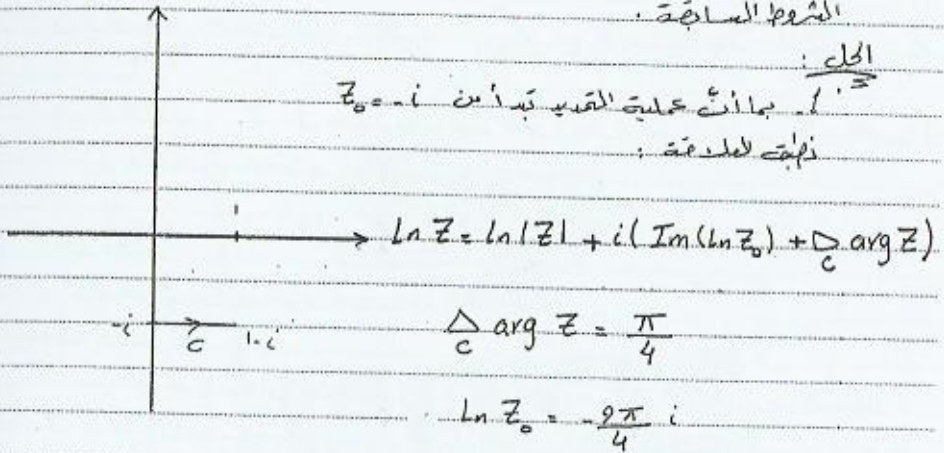 الشروط السابقة.
الحل:
1. بما أنّ عملية التمديد تبدأ من Z₀ = -i
نطبق العلاقة:
1
ln Z = ln|Z| + i( Im(ln Z₀) + Δ_C arg Z)
-i C 1-i
Δ_C arg Z = π/4
Ln Z₀ = -9π/4 i